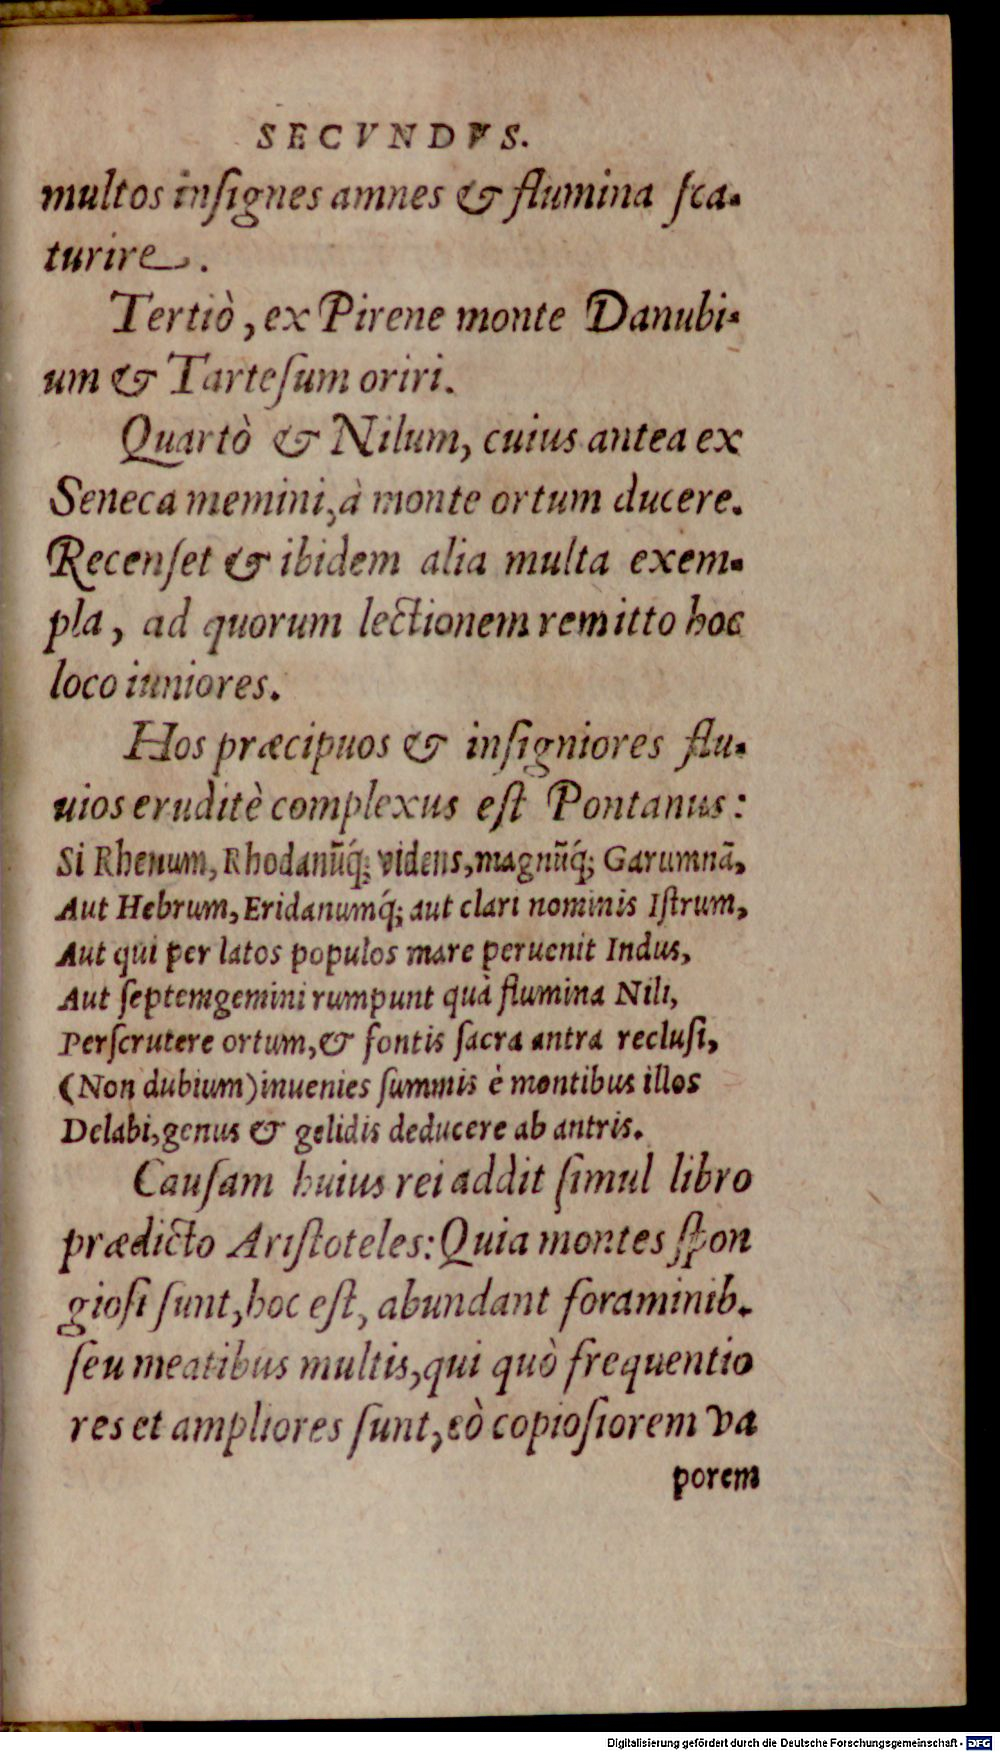 SECVNDVS.
multos inſignes amnes & flumina ſca-
turire.
Tertiò, ex Pirene monte Danubi-
um & Tarteſum oriri.
Quartò & Nilum, cuius antea ex
Seneca memini, à monte ortum ducere.
Recenſet & ibidem alia multa exem-
pla, ad quorum lectionem remitto hoc
loco iuniores.
Hos præcipuos & inſigniores flu-
uios eruditè complexus eſt Pontanus:
Si Rhenum, Rhodanūq́; videns, magnūq́; Garumnā,
Aut Hebrum, Eridanumq́; aut clari nominis Iſtrum,
Aut qui per latos populos mare peruenit Indus,
Aut ſeptemgemini rumpunt quà flumina Nili,
Perſcrutere ortum, & fontis ſacra antra recluſi,
(Non dubium) inuenies ſummis è montibus illos
Delabi, genus & gelidis deducere ab antris.
Cauſam huius rei addit ſimul libro
prædicto Ariſtoteles: Quia montes ſpon
gioſi ſunt, hoc eſt, abundant foraminib.
ſeu meatibus multis, qui quò frequentio
res et ampliores ſunt, eò copioſiorem va
porem
Digitalisierung gefördert durch die Deutsche Forschungsgemeinschaft - DFG